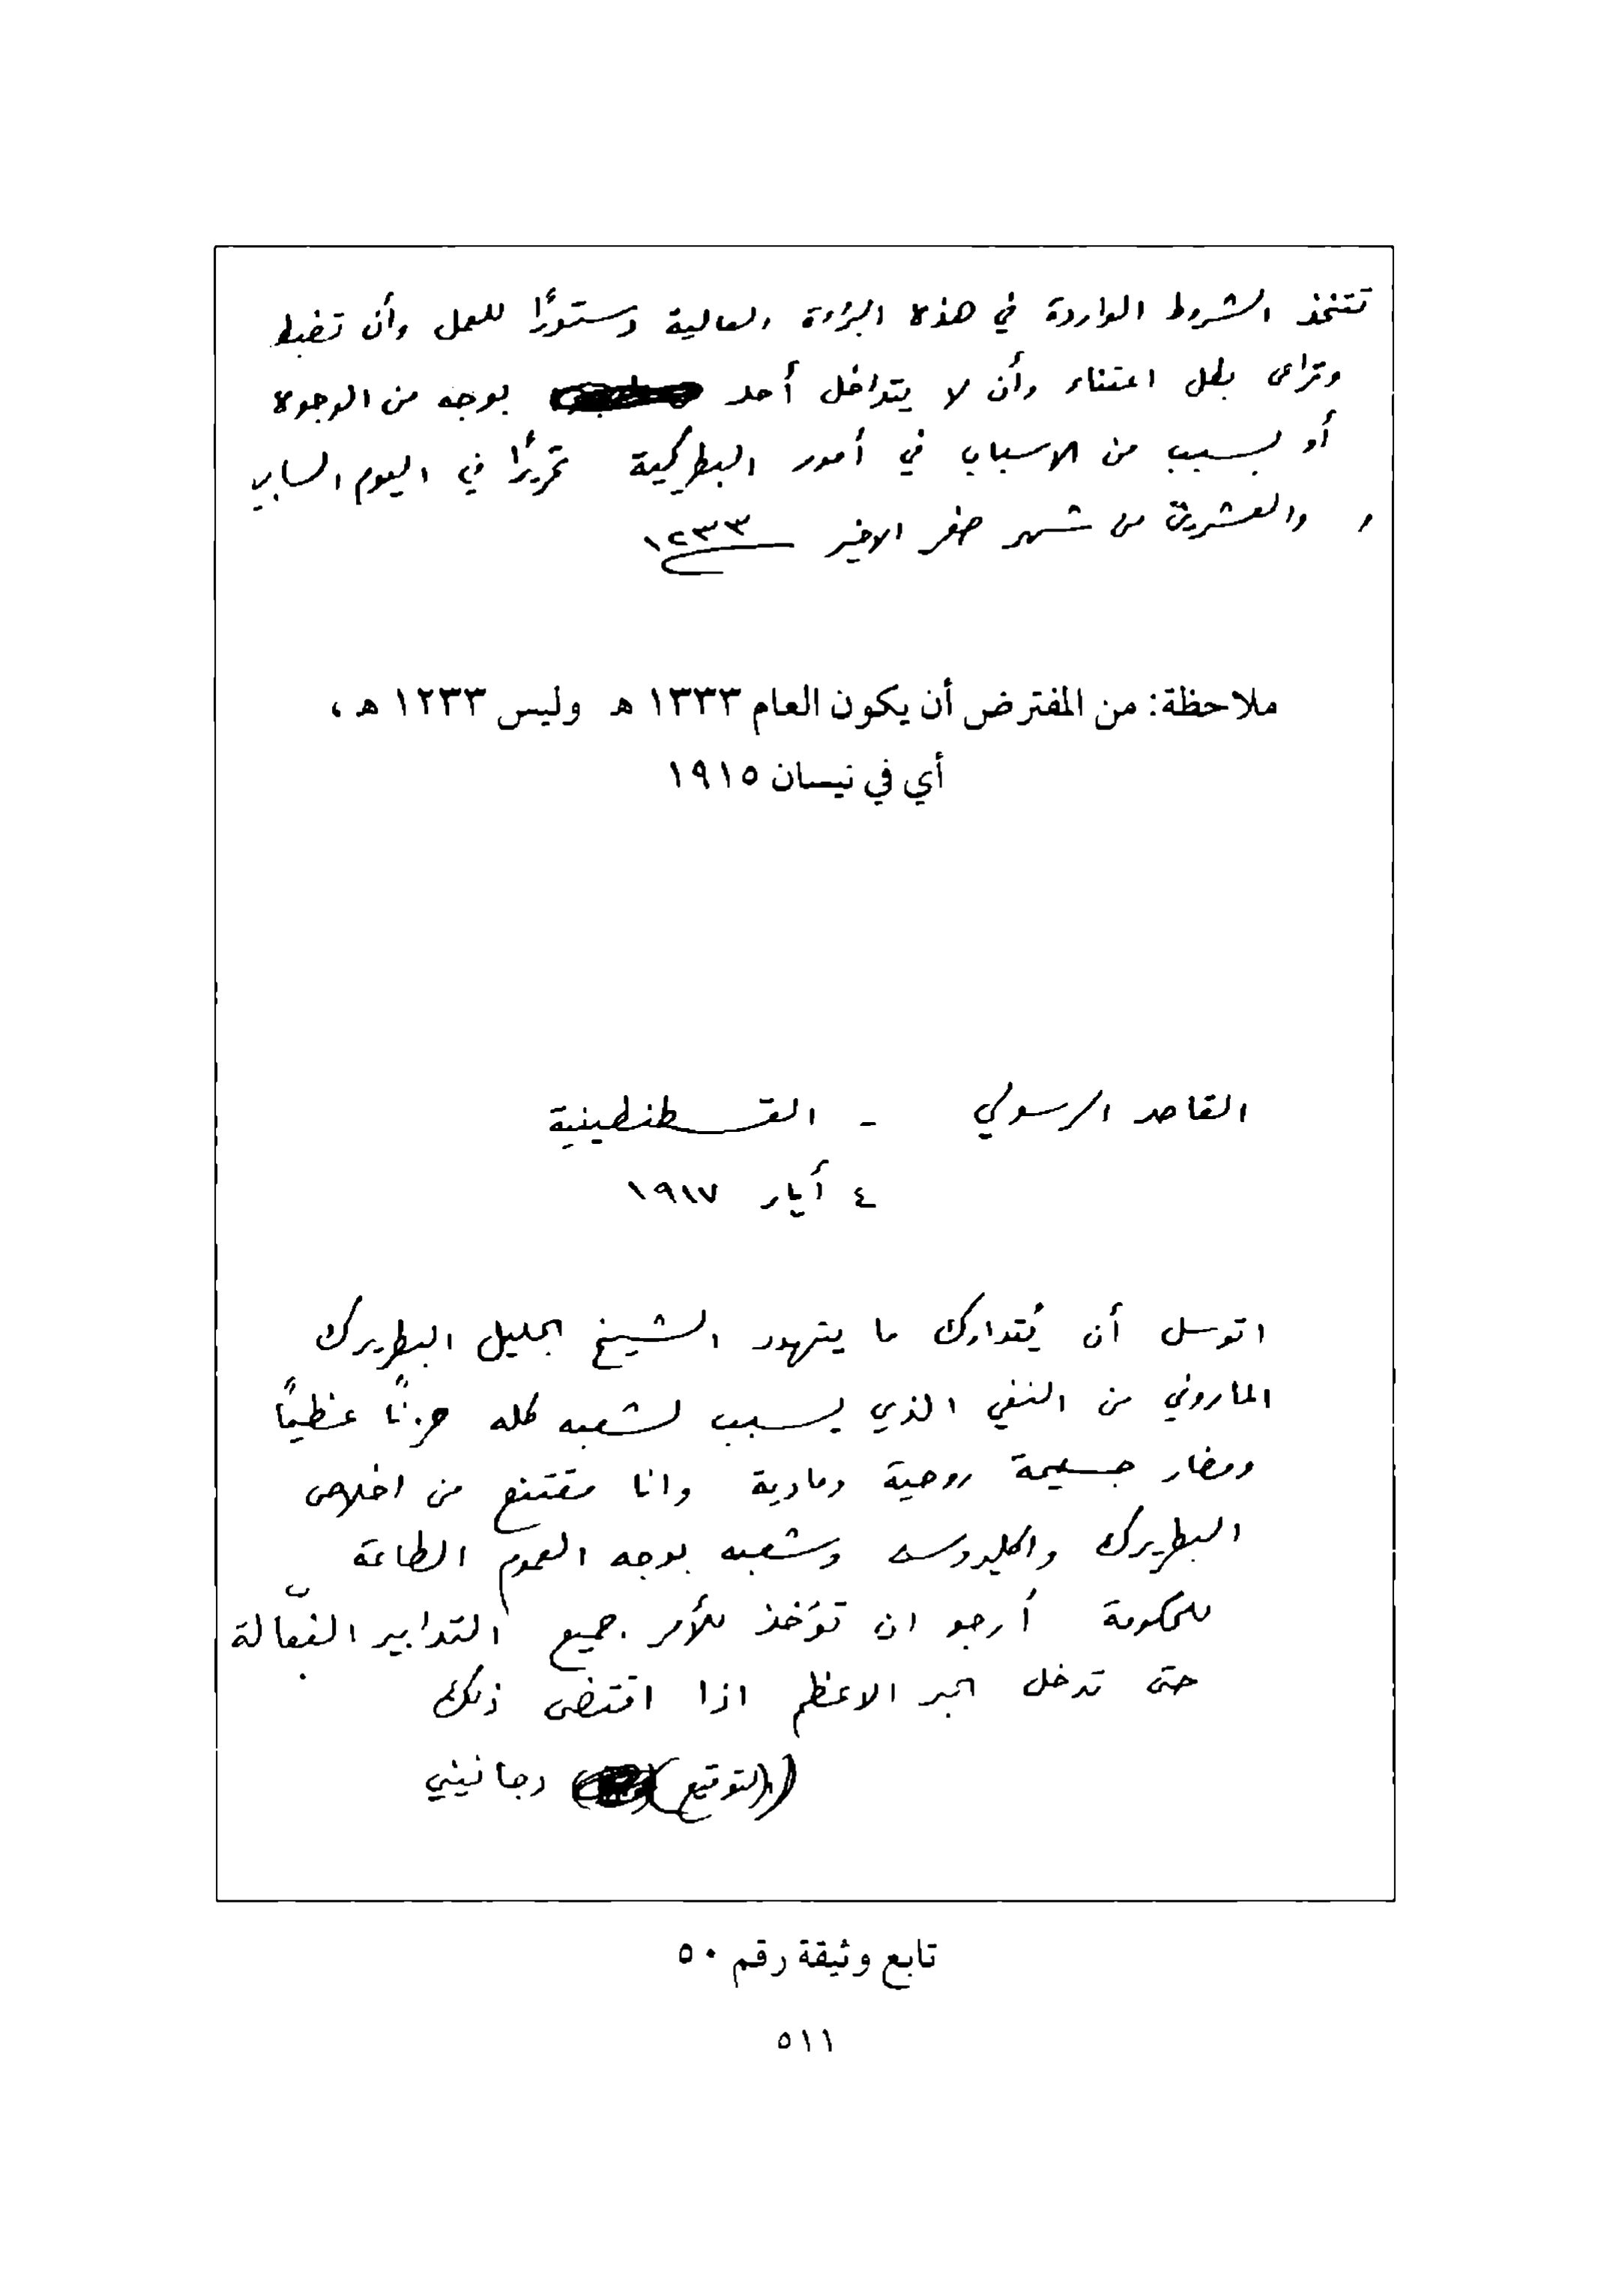 تتخذ الشروط الواردة في هذه البراءة العالية دستورًا للعمل وأن تضبط
وتراعى بكل اعتناء وأن لا يتداخل أحد بوجه من الوجوه
أو بسبب من الاسباب في أمور البطركية تحريرًا في اليوم السابع
والعشرين من شهر صفر الاخير ١٢٣٣
ملاحظة: من المفترض أن يكون العام ١٣٣٣ هـ وليس ١٢٣٣ هـ،
أي في نيسان ١٩١٥
القاصد الرسولي - القسطنطينية
٤ أيار ١٩١٧
اتوسل أن يُتدارك ما يتهدد الشيخ الجليل البطريرك
الماروني من النفي الذي يسبب لشعبه كله حزنًا عظيمًا
ومضار جسيمة روحية ومادية وانا مقتنع من اخلاص
البطريرك واكليروسه وشعبه بوجه العموم الطاعة
للحكومة أرجو ان تؤخذ للأمر جميع التدابير الفعّالة
حتى تدخل الحبر الاعظم اذا اقتضى ذلك
(التوقيع) دجانيني
تابع وثيقة رقم ٥٠
٥١١